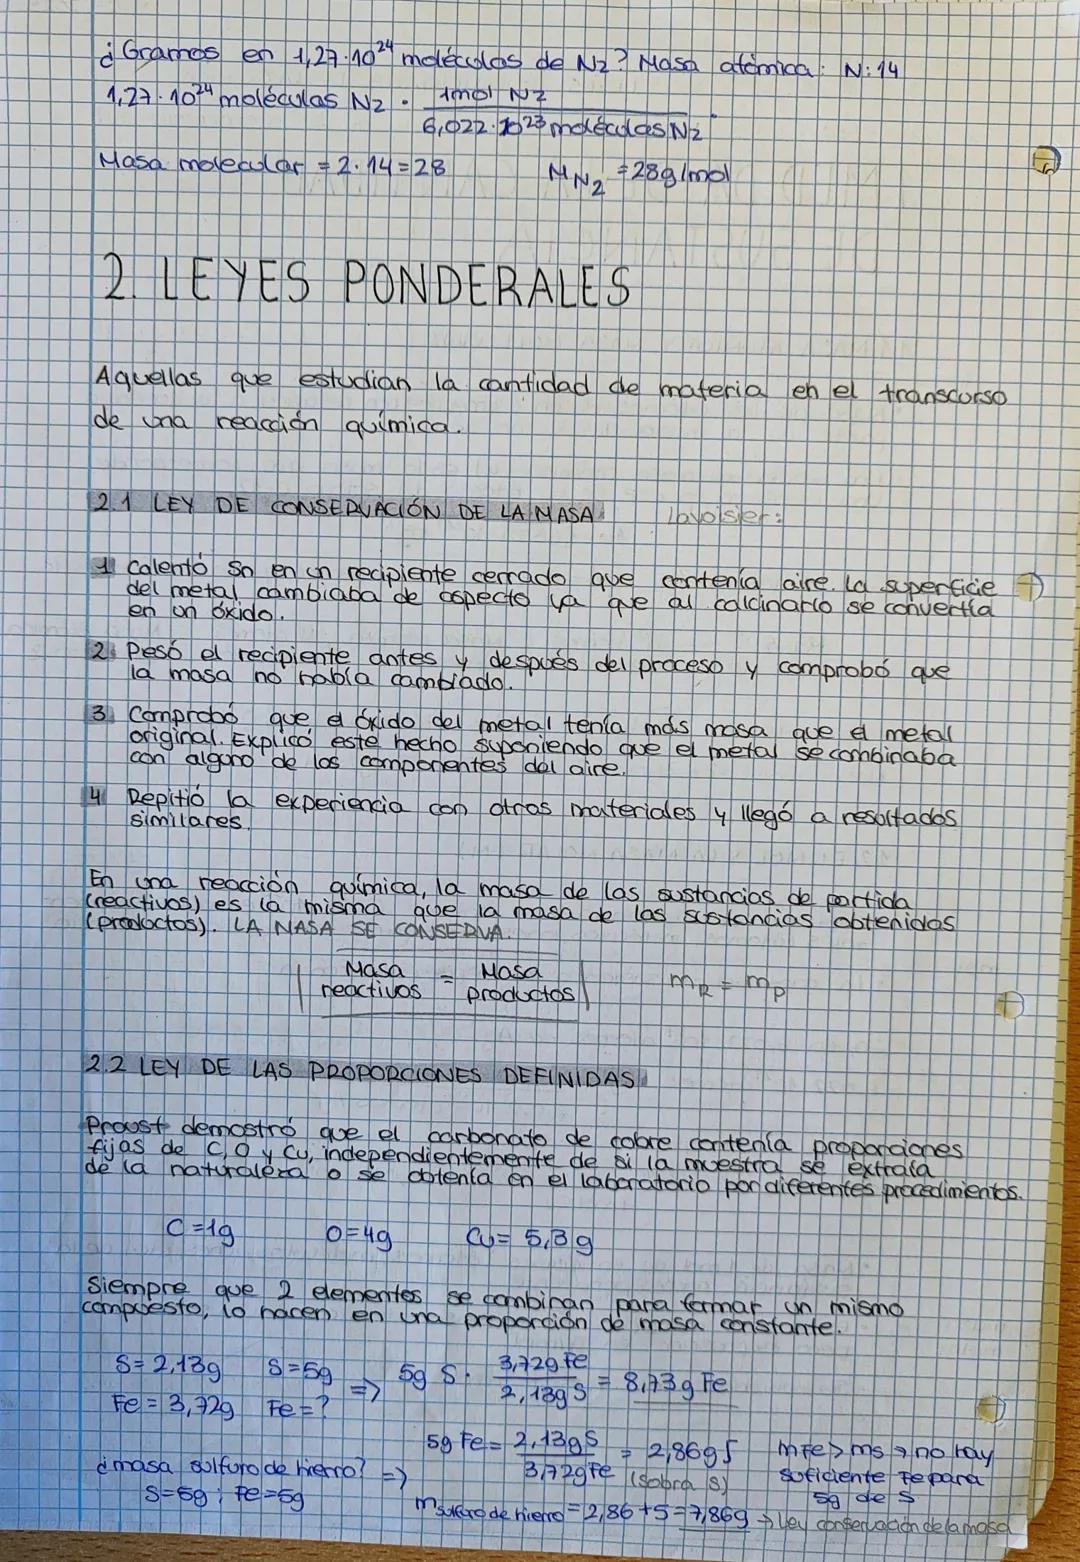 ¿Gramos en 1,27·10²⁴ moléculas de N₂? Masa atómica: N:14
1,27·10²⁴ moléculas N₂ · 1mol N₂ / 6,022·10²³ moléculas N₂ ·
Masa molecular = 2·14=28 M N₂ =28g/mol
2. LEYES PONDERALES
Aquellas que estudian la cantidad de materia en el transcurso
de una reacción química.
2.1 LEY DE CONSERVACIÓN DE LA MASA Lavoisier:
1 Calentó Sn en un recipiente cerrado que contenía aire. La superficie
del metal cambiaba de aspecto ya que al calcinarlo se convertía
en un óxido.
2 Pesó el recipiente antes y después del proceso y comprobó que
la masa no había cambiado.
3 Comprobó que el óxido del metal tenía más masa que el metal
original. Explicó este hecho suponiendo que el metal se combinaba
con alguno de los componentes del aire.
4 Repitió la experiencia con otros materiales y llegó a resultados
similares.
En una reacción química, la masa de las sustancias de partida
(reactivos) es la misma que la masa de las sustancias obtenidas
(productos). LA MASA SE CONSERVA.
Masa reactivos = Masa productos m_R = m_P
2.2 LEY DE LAS PROPORCIONES DEFINIDAS
Proust demostró que el carbonato de cobre contenía proporciones
fijas de C, O y Cu, independientemente de si la muestra se extraía
de la naturaleza o se obtenía en el laboratorio por diferentes procedimientos.
C=1g O=4g Cu= 5,3g
Siempre que 2 elementos se combinan para formar un mismo
compuesto, lo hacen en una proporción de masa constante.
S= 2,13g S=5g => 5g S · 3,72g Fe / 2,13g S = 8,73g Fe
Fe= 3,72g Fe=?
5g Fe= 2,13g S / 3,72g Fe = 2,86g S (sobra S) mFe>ms → no hay
¿masa sulfuro de hierro? => suficiente Fe para
S=5g ; Fe=5g 5g de S
m sulfuro de hierro = 2,86+5=7,86g → Ley conservación de la masa